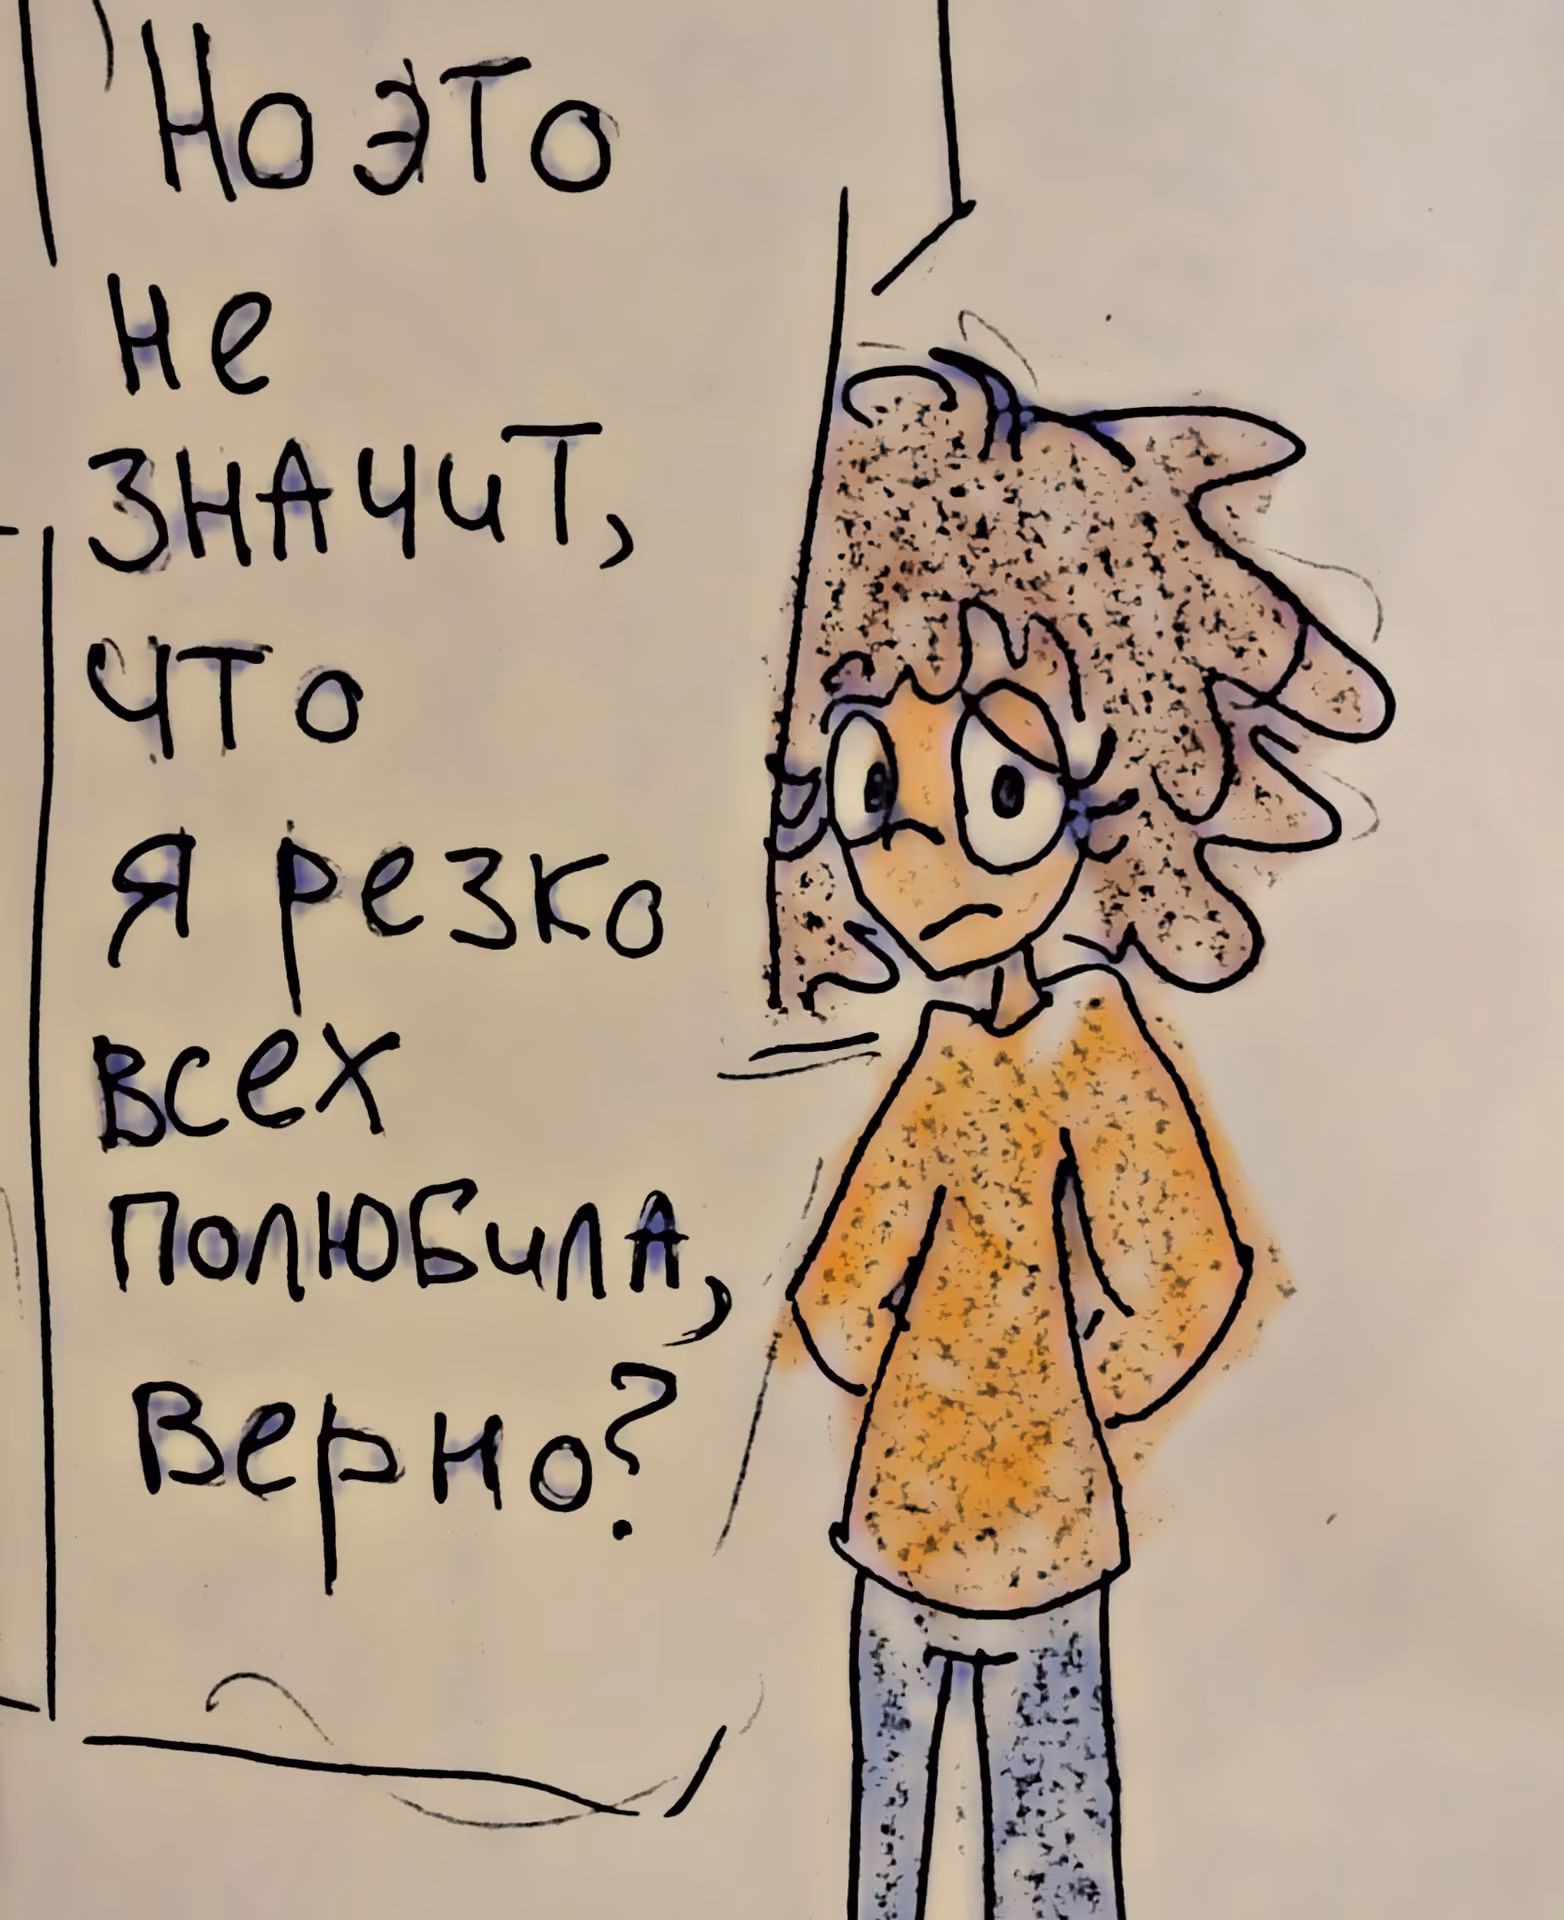 Но это
не
значит,
что
я резко
всех
полюбила,
верно?